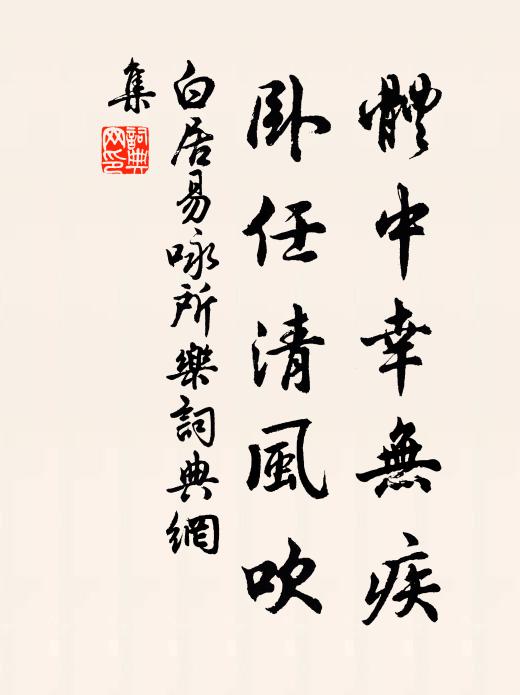 體中幸無疾
臥任清風吹
白居易咏所樂詞典網
集
詞典網印